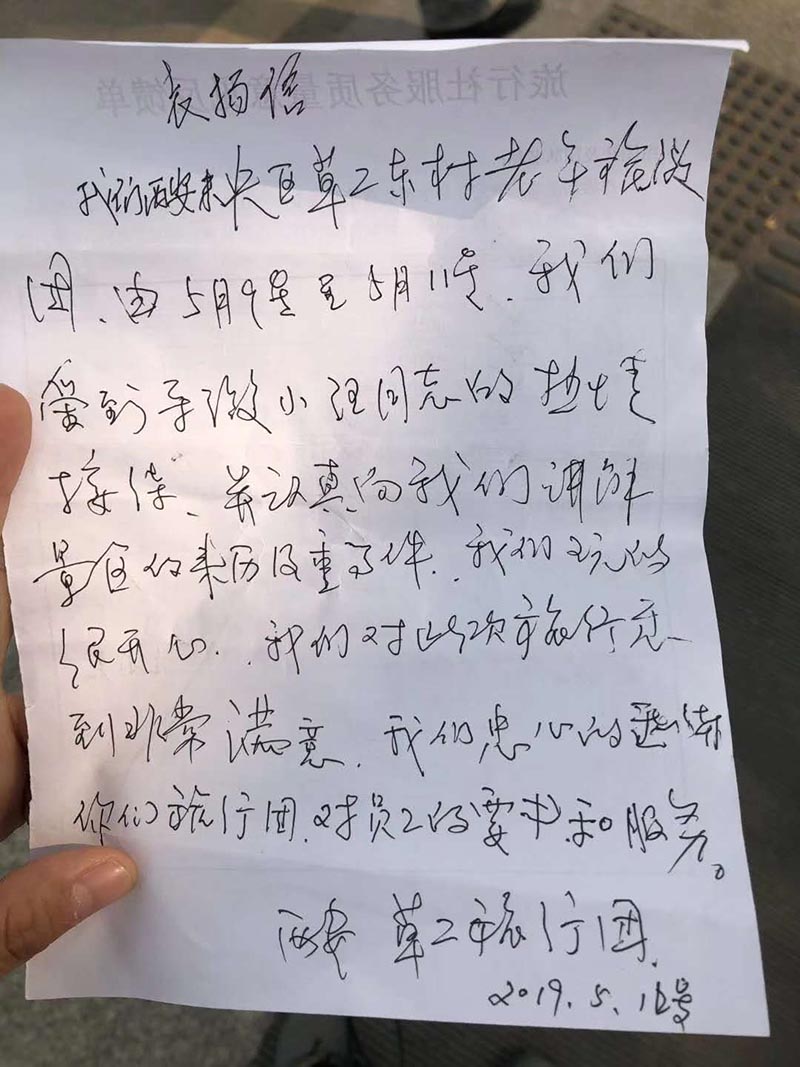 旅行社服务质量 反馈单
表扬信
我们西安未央区草二东村老年旅游
团、由5月9号至5月11号、我们
受到导游小汪同志的热情
接待、并认真向我们讲解
景区的来历及重要事件、我们玩的
很开心、我们对此次旅行感
到非常满意、我们忠心的感谢
你们旅行团、对员工的要求和服务。
西安 草二旅行团、
2019.5.12号